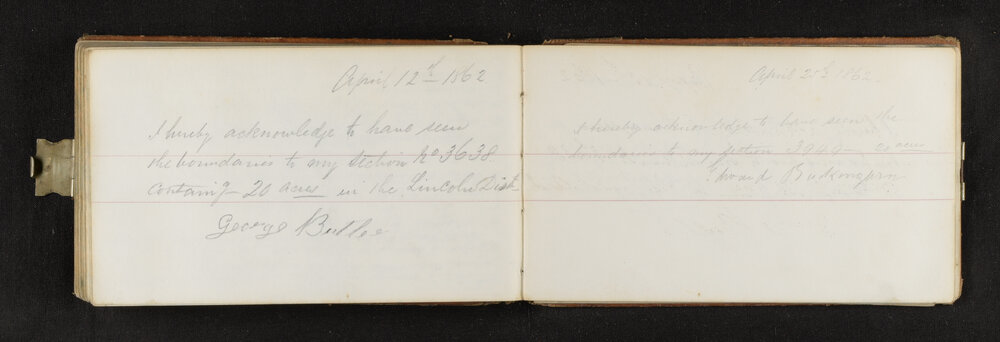 April 12th 1862
I hereby acknowledge to have seen
the boundaries to my Section No 3638
containg 20 acres in the Lincoln Dist
George Butler
April 1862
I hereby acknowledge to have seen the
boundaries to my section acres